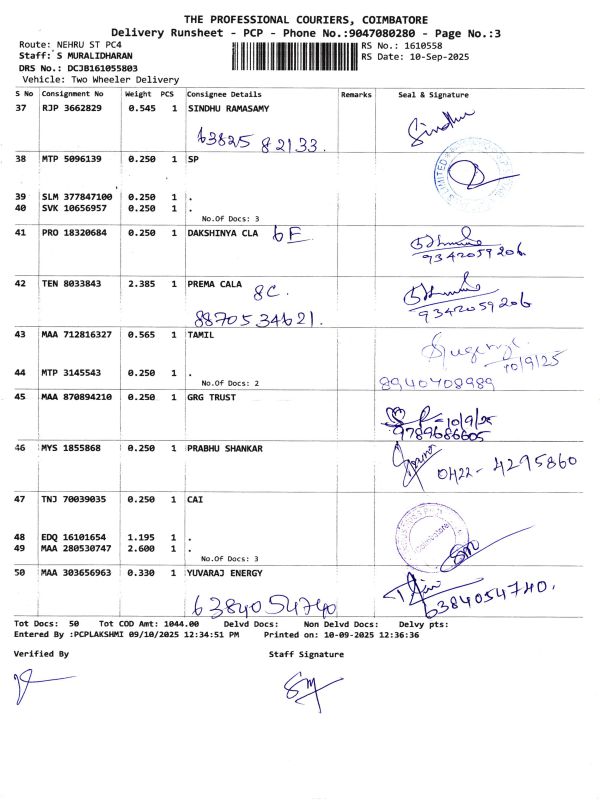 THE PROFESSIONAL COURIERS, COIMBATORE
Delivery Runsheet - PCP - Phone No.:9047080280 - Page No.:3
Route: NEHRU ST PC4 RS No.: 1610558
Staff: S MURALIDHARAN RS Date: 10-Sep-2025
DRS No.: DCJB161055803
Vehicle: Two Wheeler Delivery
S No Consignment No Weight PCS Consignee Details Remarks Seal & Signature
37 RJP 3662829 0.545 1 SINDHU RAMASAMY Sindhu
63825 82133.
38 MTP 5096139 0.250 1 SP
39 SLM 377847100 0.250 1 .
40 SVK 10656957 0.250 1 .
No.Of Docs: 3
41 PRO 18320684 0.250 1 DAKSHINYA CLA 6E
9342059206
42 TEN 8033843 2.385 1 PREMA CALA
8C.
9342059206
8870534621.
43 MAA 712816327 0.565 1 TAMIL
10/9/25
44 MTP 3145543 0.250 1 .
No.Of Docs: 2 8940708989
45 MAA 870894210 0.250 1 GRG TRUST
10/9/25
9789686605
46 MYS 1855868 0.250 1 PRABHU SHANKAR
0422-4295860
47 TNJ 70039035 0.250 1 CAI
48 EDQ 16101654 1.195 1 .
49 MAA 280530747 2.600 1 .
No.Of Docs: 3
50 MAA 303656963 0.330 1 YUVARAJ ENERGY
6384054740 6384054740.
Tot Docs: 50 Tot COD Amt: 1044.00 Delvd Docs: Non Delvd Docs: Delvy pts:
Entered By :PCPLAKSHMI 09/10/2025 12:34:51 PM Printed on: 10-09-2025 12:36:36
Verified By Staff Signature